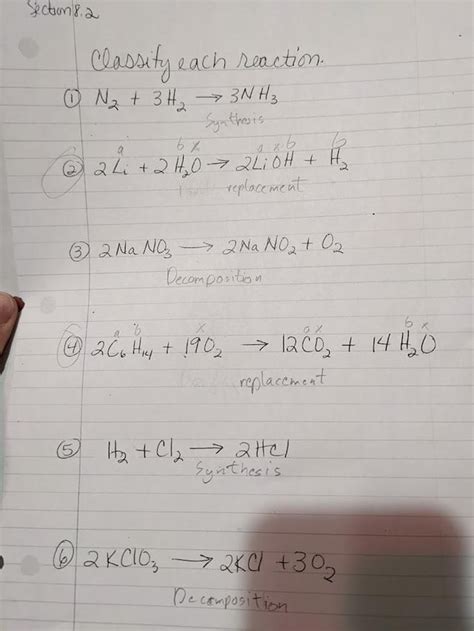 Section 8.2
Classify each reaction.
① N₂ + 3H₂ → 3NH₃
Synthesis
a b x a x b b
② 2Li + 2H₂O → 2LiOH + H₂
replacement
③ 2NaNO₃ → 2NaNO₂ + O₂
Decomposition
a b x a x b x
④ 2C₆H₁₄ + 19O₂ → 12CO₂ + 14H₂O
replacement
⑤ H₂ + Cl₂ → 2HCl
Synthesis
⑥ 2KClO₃ → 2KCl + 3O₂
Decomposition